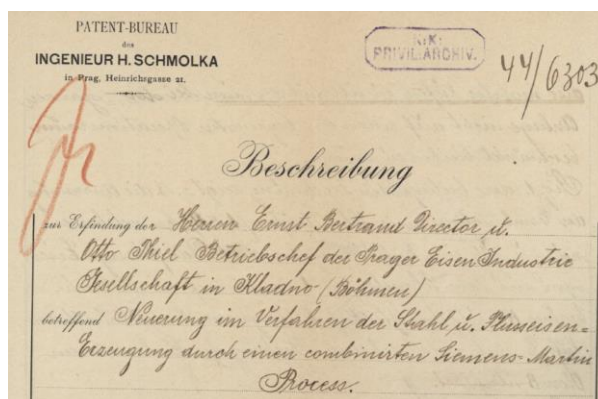 PATENT-BUREAU
des
INGENIEUR H. SCHMOLKA
in Prag, Heinrichsgasse 21.
K.K.
PRIVIL.ARCHIV.
44/6303
Beschreibung
zur Erfindung der Herren Ernst Bertrand Director u.
Otto Thiel Betriebschef der Prager Eisen Industrie
Gesellschaft in Kladno (Böhmen)
betreffend Neuerung im Verfahren der Stahl u. Flusseisen=
Erzeugung durch einen combinirten Siemens-Martin
Process.